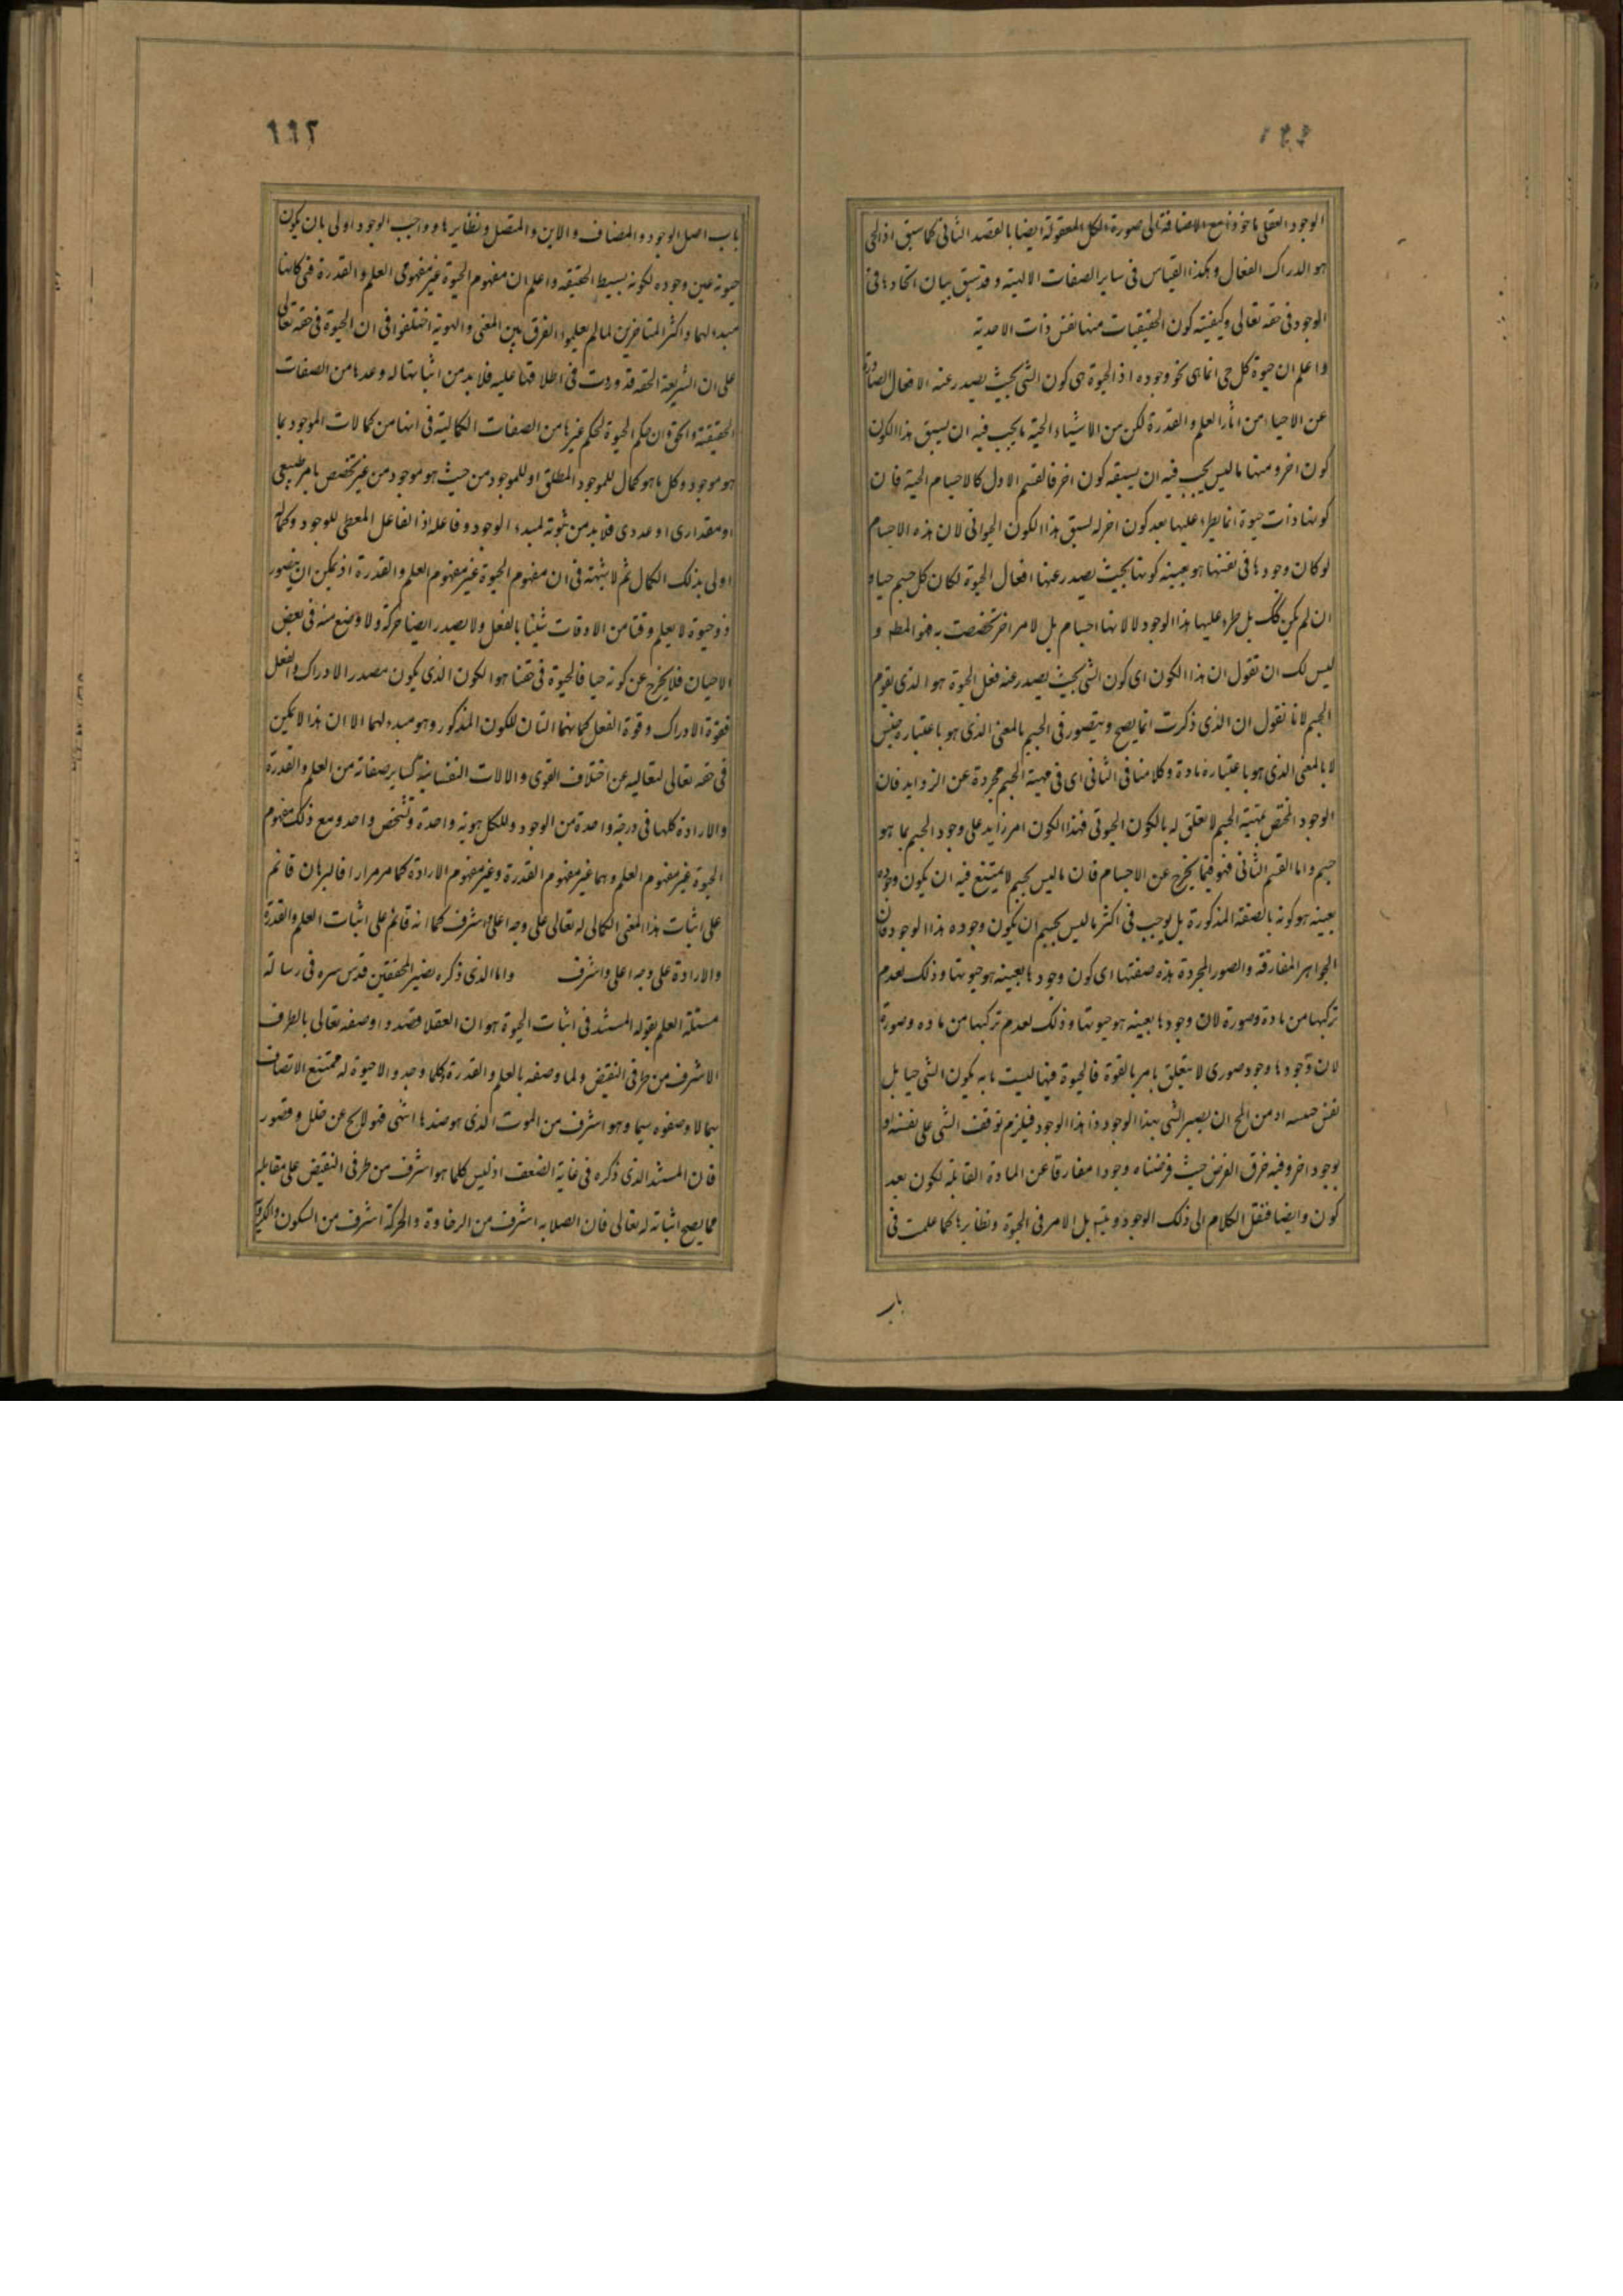 الوجود العقلى ماخوذ مع الاضافة الى صورة الكل المعقولة ايضا بالقصد الثانى كما سبق اذ الحى
هو الدراك الفعال وهكذا القياس فى ساير الصفات الالهية وقد سبق بيان اتحادها فى
الوجود فى حقه تعالى وكيفية كون الحقيقيات منها نفس ذات الاحدية
واعلم ان حيوة كل حى انما هى نحو وجوده اذ الحيوة هى كون الشئ بحيث يصدر عنه الافعال الصادرة
عن الاحياء من اثار العلم والقدرة لكن من الاشياء الحية ما يجب فيه ان يسبق هذا الكون
كون اخر ومنها ما ليس يجب فيه ان يسبقه كون اخر فالقسم الاول كالاجسام الحية فان
كونها ذات حيوة انما يطرء عليها بعد كون اخر له لسبق هذا الكون الحيوانى لان هذه الاجسام
لو كان وجودها فى نفسها هو بعينه كونها بحيث يصدر عنها افعال الحيوة لكان كل جسم حيا و
ان لم يكن كك بل طرء عليها هذا الوجود لا لانها اجسام بل لامر اخر تخصصت به فهو المطم و
ليس لك ان تقول ان هذا الكون اى كون الشئ بحيث يصدر عنه فعل الحيوة هو الذى يقوم
الجسم لانا نقول ان الذى ذكرت انما يصح ويتصور فى الجسم بالمعنى الذى هو باعتباره جنس
لا بالمعنى الذى هو باعتباره مادة وكلامنا فى الثانى اى فى مهية الجسم مجردة عن الزوايد فان
الوجود المختص بمهية الجسم لا تعلق له بالكون الحيوتى فهذا الكون امر زايد على وجود الجسم بما هو
جسم واما القسم الثانى فهو فيما يخرج عن الاجسام فان ما ليس بجسم لا يمتنع فيه ان يكون وجوده
بعينه هو كونه بالصفة المذكورة بل يوجب فى اكثر ما ليس بجسم ان يكون وجوده هذا الوجود فان
الجواهر المفارقة والصور المجردة هذه صفتها اى كون وجودها بعينه هو حيوتها وذلك لعدم
تركبها من مادة وصورة لان وجودها بعينه هو حيوتها وذلك لعدم تركبها من ماده وصورة
لان وجودها وجود صورى لا يتعلق بامر بالقوة فالحيوة فيها ليست ما به يكون الشئ حيا بل
نفس حيسه اد من المح ان يصير الشئ بهذا الوجود ذا هذا الوجود فيلزم توقف الشئ على نفسه او
بوجود اخر وفيه خرق الفرض حيث فرضناه وجودا مفارقا عن المادة القابلة لكون بعد
كون وايضا فننقل الكلام الى ذلك الوجود ويتم بل الامر فى الحيوة ونظايرها كما علمت فى
باب
٦٦٢
باب اصل الوجود والمضاف والاين والمتصل ونظايرها وواجب الوجود اولى بان يكون
حيوته عين وجوده لكونه بسيط الحقيقه واعلم ان مفهوم الحيوة غير مفهومى العلم والقدرة فهى كانها
مبدء لهما واكثر المتاخرين لما لم يعلموا الفرق بين المعنى والهوية اختلفوا فى ان الحيوة فى حقه تعالى
على ان الشريعة الحقه قد وردت فى اطلاقها عليه فلا بد من اثباتها له وعدها من الصفات
الحقيقية والحق ان حكم الحيوة لحكم غيرها من الصفات الكمالية فى انها من كمالات الموجود بما
هو موجود وكل ما هو كمال للموجود المطلق او للموجود من حيث هو موجود من غير تخصص بامر طبيعى
او مقدارى او عددى فلا بد من ثبوته لمبدء الوجود وفاعله اذ الفاعل المعطى للوجود وكماله
اولى بذلك الكمال ثم لا شبهة فى ان مفهوم الحيوة غير مفهوم العلم والقدرة اذ يمكن ان يتصور
ذو حيوة لا يعلم وقتا من الاوقات شيئا بالفعل ولا يصدر ايضا حركة ولا وضع منه فى بعض
الاحيان فلا يخرج عن كونه حيا فالحيوة فى حقنا هو الكون الذى يكون مصدر الادراك والفعل
فقوة الادراك وقوة الفعل كانهما التان للكون المذكور وهو مبدء لهما الا ان هذا لا يمكن
فى حقه تعالى لتعاليه عن اختلاف القوى والالات النفسانية كساير صفاته من العلم والقدرة
والارادة كلها فى درجة واحدة من الوجود وللكل هوية واحدة وتشخص واحد ومع ذلك مفهوم
الحيوة غير مفهوم العلم وهما غير مفهوم القدرة وغير مفهوم الارادة كما مر مرارا فالبرهان قائم
على اثبات هذا المعنى الكمالى له تعالى على وجه اعلى واشرف كما انه قائم على اثبات العلم والقدرة
والارادة على وجه اعلى واشرف واما الذى ذكره نصير المحققين قدس سره فى رسالة
مسئلة العلم بقوله المستند فى اثبات الحيوة هو ان العقلا قصدوا وصفه تعالى بالطرف
الاشرف من طرفى النقيض ولما وصفه بالعلم والقدرة وكلما وجدوا لا حيوة له ممتنع الاتصاف
بهما لا وصفوه سيما وهو اشرف من الموت الذى هو ضدها انتهى فهو لا يخ عن خلل وقصور
فان المستند الذى ذكره فى غاية الضعف اذ ليس كلما هو اشرف من طرفى النقيض على مقابله
مما يصح اثباته له تعالى فان الصلابه اشرف من الرخاوة والحركة اشرف من السكون والكرية